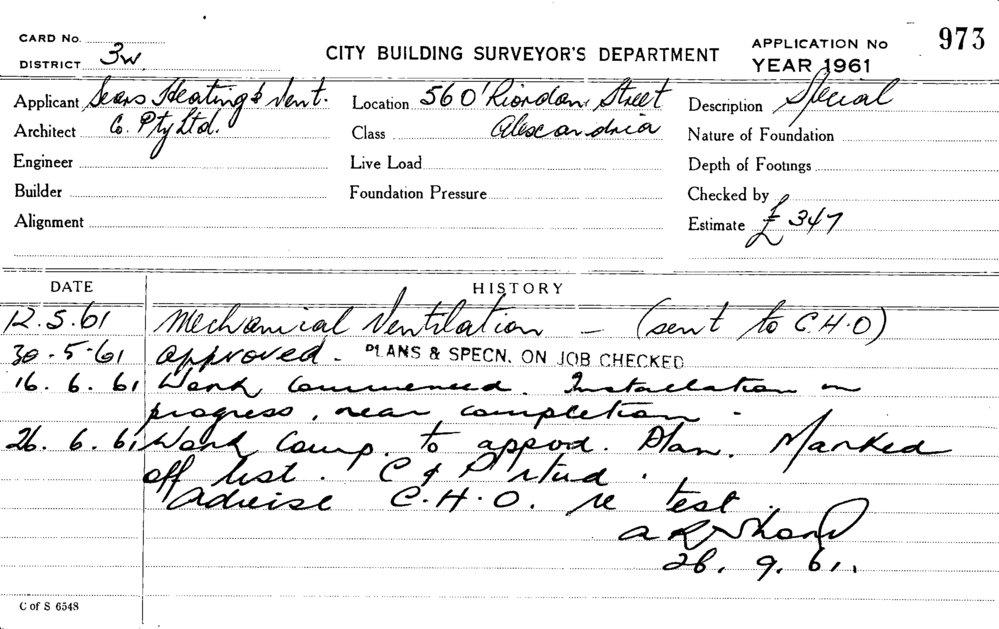 CARD No.
DISTRICT 3W.
CITY BUILDING SURVEYOR'S DEPARTMENT
APPLICATION No 973
YEAR 1961
Applicant Sears Heating & Vent.
Co. Pty Ltd.
Location 56 O'Riordan Street
Alexandria
Description Special
Architect
Class
Nature of Foundation
Engineer
Live Load
Depth of Footings
Builder
Foundation Pressure
Checked by
Alignment
Estimate £347
DATE HISTORY
12.5.61 Mechanical Ventilation – (sent to C.H.O)
30.5.61 Approved. PLANS & SPECN. ON JOB CHECKED
16.6.61 Work commenced. Installation in
progress, near completion.
26.6.61 Work Comp. to appvd. Plan. Marked
off list. C & P rtud.
Advise C.H.O. re test.
26.9.61.
C of S 6548